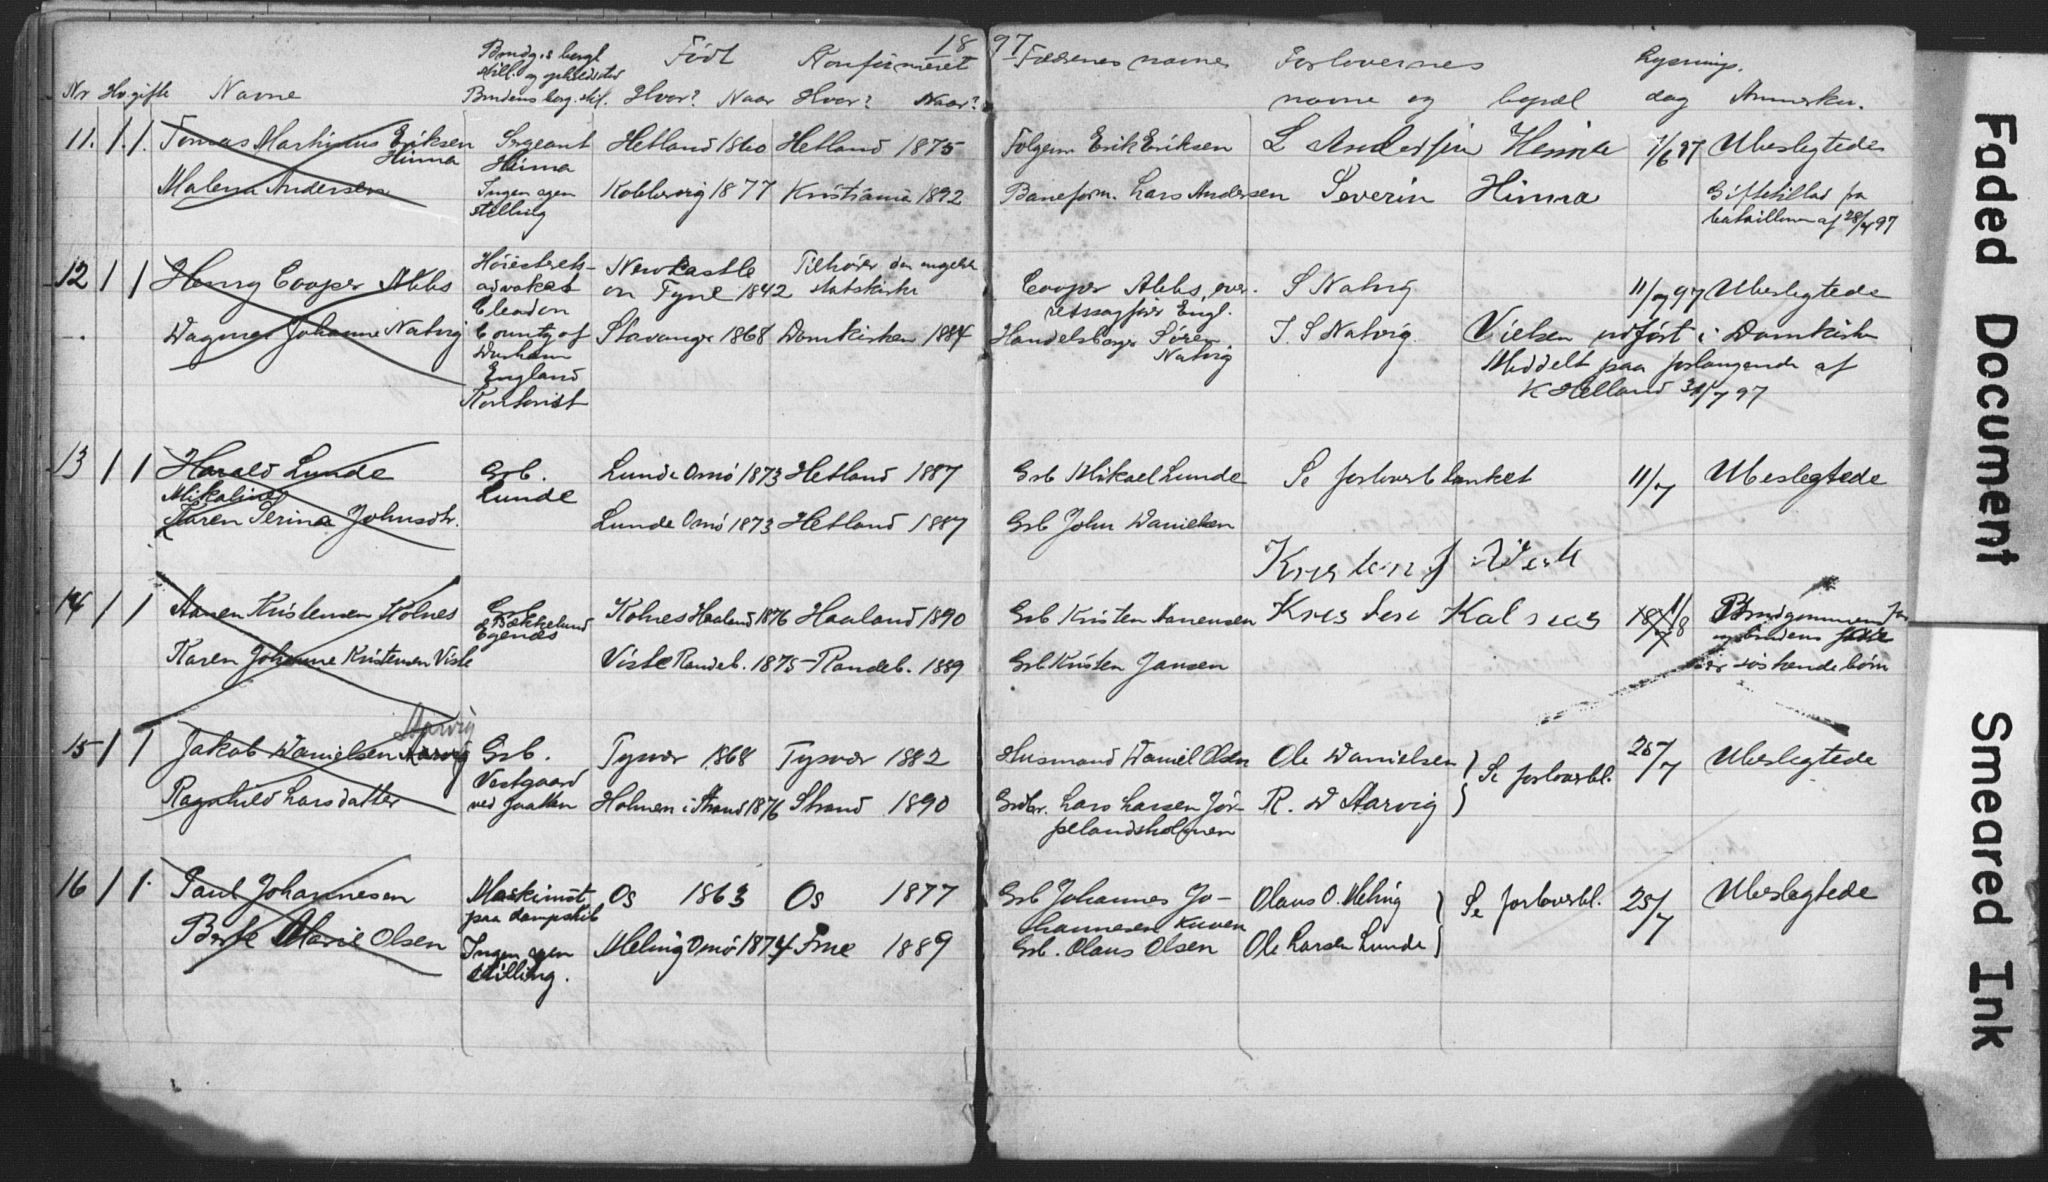 18 97
Nr Hv. gifte Navne Født Hvor? Naar Konfirmeret Hvor? Naar? Fædrenes navne Forlovernes navne og bopæl Lysnings. dag Anmerkn.
11. 1. 1. Tomas Martinius Eriksen Hinna
Sergeant Hinna
Hetland 1860 Hetland 1875
Erik Eriksen
L Andersen Hinna
1/6 97 Ubeslegtede
Malena Andersen
Ingen egen stelling
1877 Kristiania 1892
Baneform. Lars Andersen
Severin Hinna
Giftetillad fra
bataillonen af 28/4 97
12 1 1 Henry Cooper Abbs
Høiesterets-
advokat
Cleadon
County of
Durham
England
Newkastle
on Tyne 1842
Tilhører den engelske
statskirke
Cooper Abbs, over-
retssagfører Engl.
S Natvig
97 Ubeslegtede
Dagmar Johanne Natvig
Kontorist
Stavanger 1868 Domkirken 1884
Søren
Natvig
S Natvig.
Vielsen udført i Domkirken
Meddelt paa forlangende af
K Helland 31/7 97
13 1 1 Harald Lunde
Grb.
Lunde
Lunde Omø 1873 Hetland 1887
Grb Mikael Lunde
Se forloverblanket
11/7 Ubeslegtede
Mikaline
Karen Serina Johnsdtr.
Lunde Omø 1873 Hetland 1887
Grb John Danielsen
Kristen Viste
14 1 1 Aanen Kristensen Kolnes
Grb
Bekkelund
Egenæs
Kolnes Haaland 1876 Haaland 1890
Grb Kristen Aanensen
Kristen Kolnes
1/8 Brudgommens far
og brudens
er søskendebørn
Karen Johanne Kristensen Viste
Viste Randeb. 1875 Randeb. 1889
Grb Kristen Jansen
15 1 1 Jakob Danielsen Aarvig
Aarvig
Grb.
Vestgaard
ved Jaatten
Tysvær 1868 Tysvær 1882
Husmand Daniel Olsen
Ole Danielsen
Se forloverbl.
25/7 Ubeslegtede
Ragnhild Larsdatter
Holmen i Strand 1876 Strand 1890
Grbr. Lars Larsen Jør-
pelandsholmen
R. D Aarvig
16 1 1. Paul Johannesen
Maskinist
paa dampskib
Os 1863 Os 1877
Grb Johannes Jo-
hannesen Kuven
Olaus O. Meling
Se forloverbl.
25/7 Ubeslegtede
Berte Marie Olsen
Ingen egen
stilling.
Meling Omø 1874 Frue 1889
Grb. Olaus Olsen
Ole Larsen Lunde
Faded Document
Smeared Ink